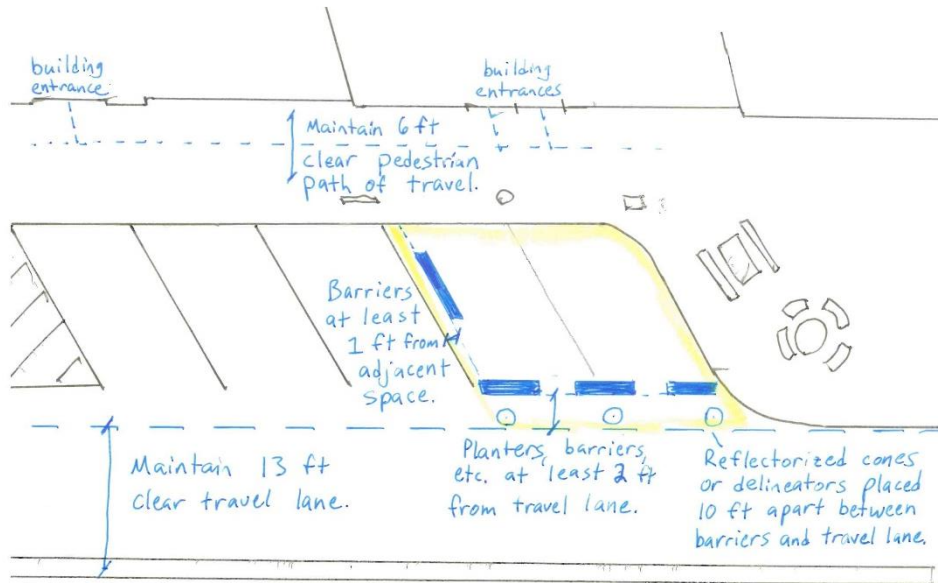 building
entrance
building
entrances
Maintain 6 ft
clear pedestrian
path of travel.
Barriers
at least
1 ft from
adjacent
space.
Maintain 13 ft
clear travel lane.
Planters, barriers,
etc. at least 2 ft
from travel lane.
Reflectorized cones
or delineators placed
10 ft apart between
barriers and travel lane.